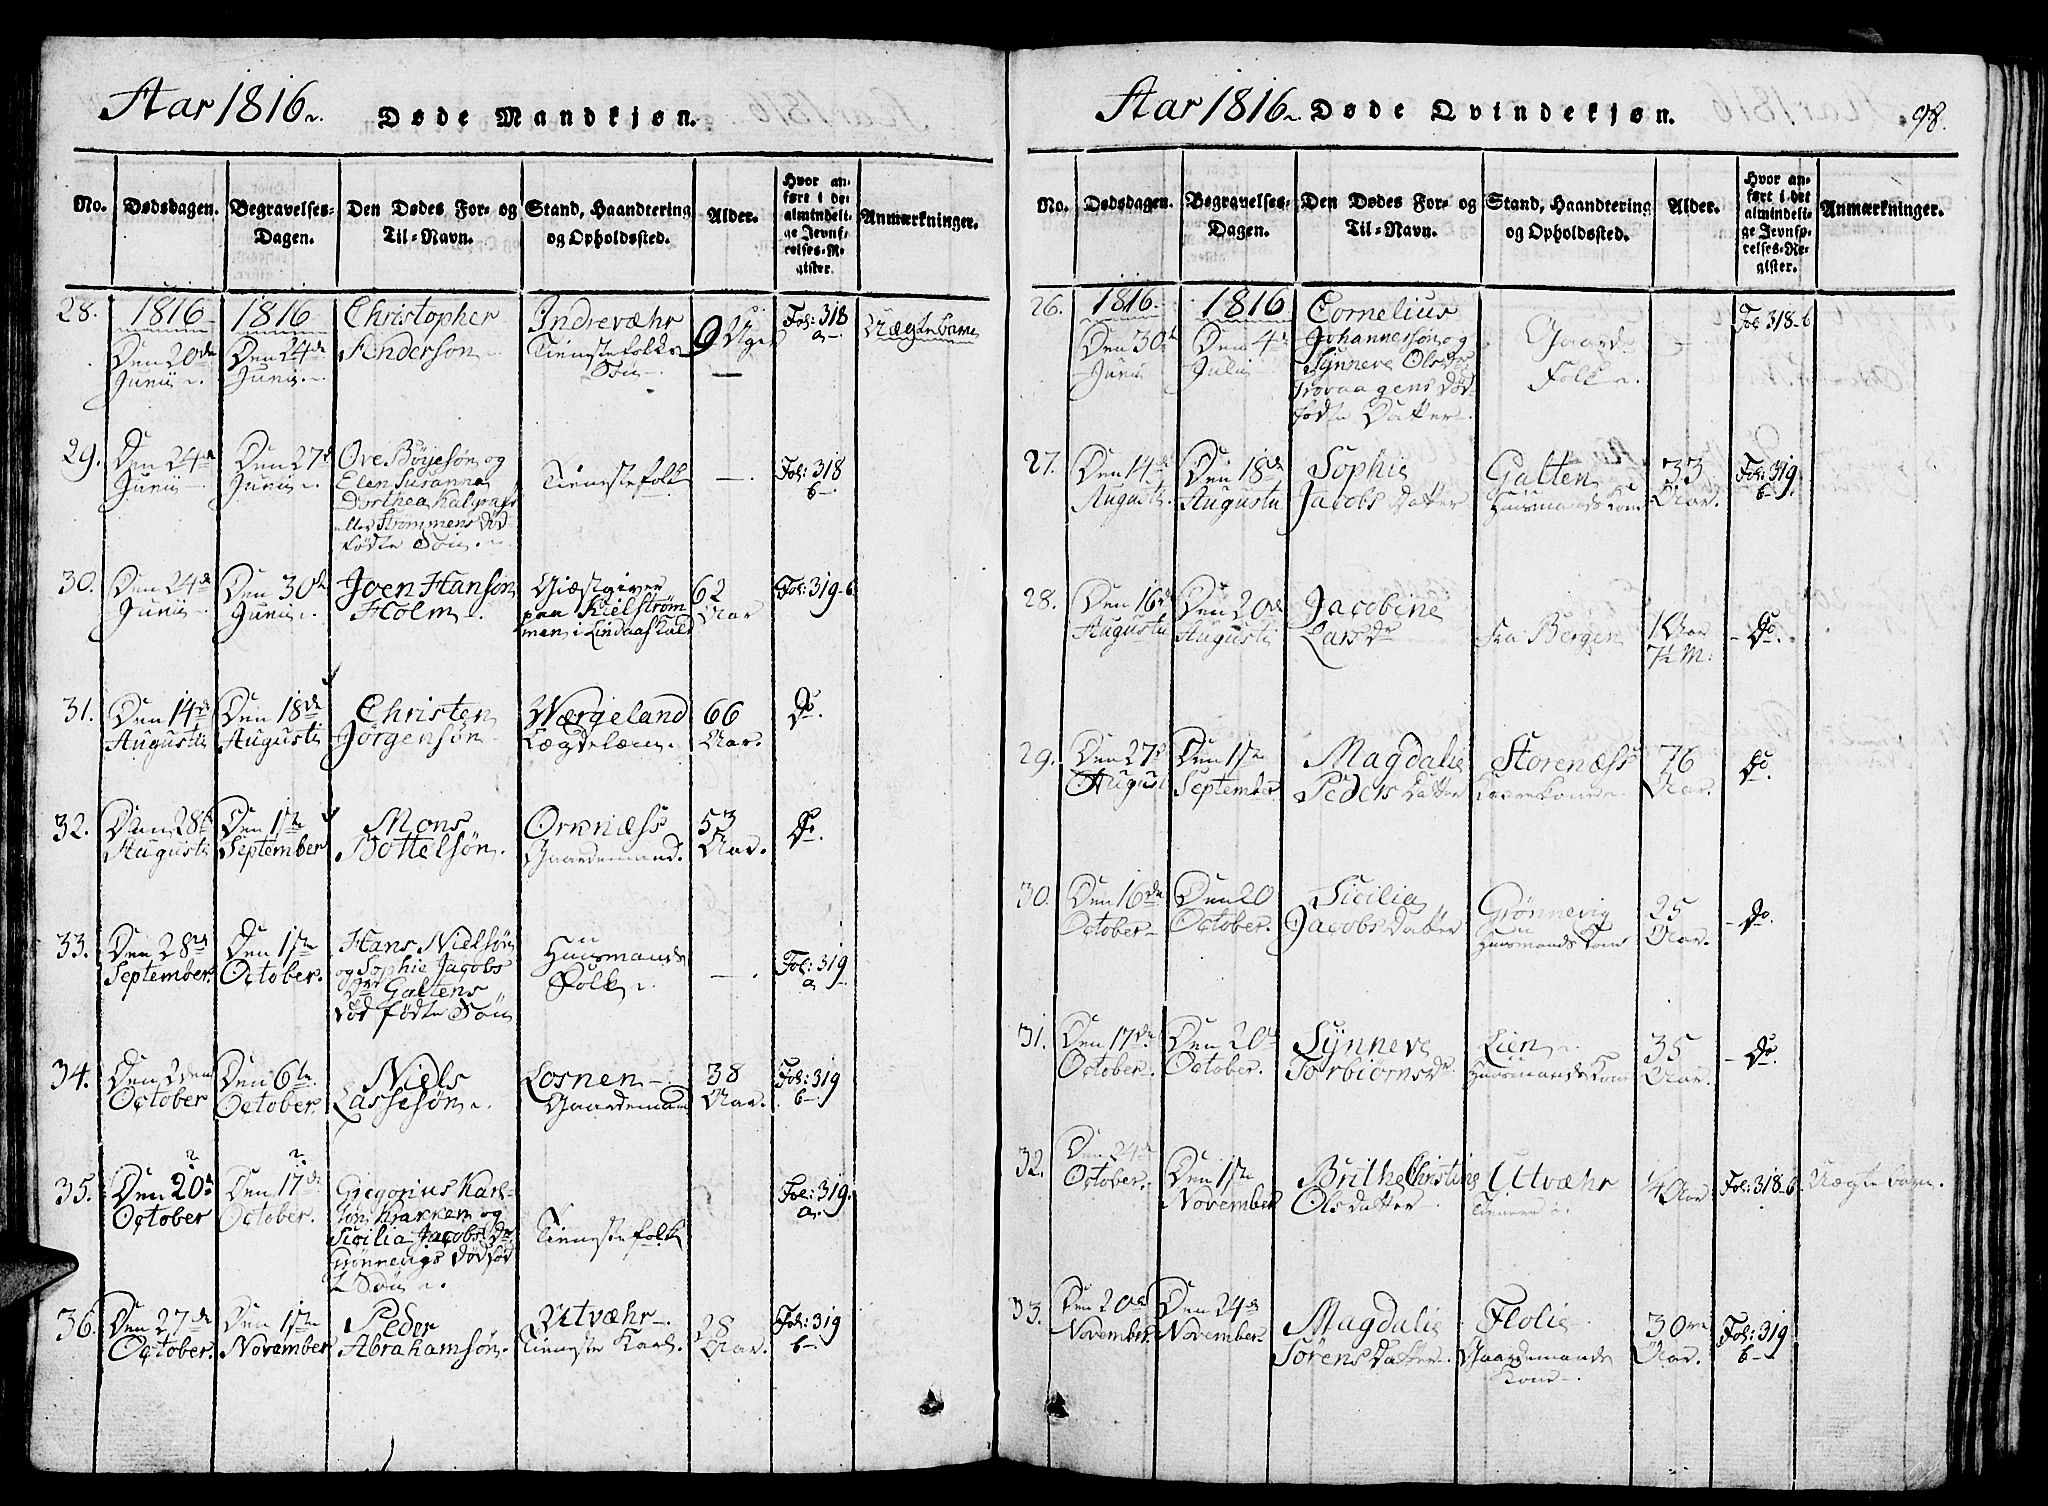 Aar 1816
Døde Mandkjøn.
No.
Dødsdagen.
Begravelses-
Dagen.
Den Dødes For- og
Til-Navn.
Stand, Haandtering
og Opholdssted.
Alder.
Hvor an-
ført i det
almindeli-
ge Jevnfø-
relses-Re-
gister.
Anmærkninger.
28.
1816
Den 20de
Junii
1816
Den 24de
Junii
Christopher
Anderson
Indrevæhr
Tienestefolks
Søn
9 Uger
Fol: 318
a
Uægte barn
29.
Den 24de
Junii
Den 27de
Junii
Ove Böyesøn og
Elen Susanna
Dorthea Kalgraff
eller Strømmens død
fødte Søn
Tienestefolk
Fol: 318
b
30.
Den 24de
Junii
Den 30te
Junii
Joen Hansøn
Holm
Giæstgiver
paa Kielstrøm
men i Lindaas Kald
62
Aar
Fol: 319-b
31.
Den 14de
Augusti
Den 18de
Augusti
Christen
Jørgensøn
Wærgeland
Lægdelæm
66
Aar.
Do.
32.
Den 28de
Augusti
Den 1ste
September
Mons
Bottelsøn
Ornæss
Gaardemand.
53
Aar.
Do.
33.
Den 28de
September
Den 1ste
October
Hans Nielsøn
og Sophie Jacobs
Dtr Galtens
død fødte Søn
Huusmands
Folk
Fol: 319
a
34.
Den 2den
October
Den 6te
October
Niels
Lassesøn
Losnen
Gaardemand
38
Aar.
Fol: 319
b
35.
Den 20de
October
Den 17de
October.
Gregorius Karl-
søn Krakken og
Sicilia Jacobs Dr
Grønnevigs død fød
t Søn
Tienestefolk
Fol: 319
a
36.
Den 27de
October.
Den 1ste
November
Peder
Abrahamsøn
Utvæhr
Tieneste Karl.
28
Aar.
Fol: 319
b
Aar 1816
Døde Qvindekjøn.
98.
No.
Dødsdagen.
Begravelses-
Dagen.
Den Dødes For- og
Til-Navn.
Stand, Haandtering
og Opholdssted.
Alder.
Hvor an-
ført i det
almindeli-
ge Jevnfø-
relses-Re-
gister.
Anmærkninger.
26.
1816
Den 30te
Junii
1816
Den 4de
Julii
Cornelius
Johannessøn og
Synneve Olsdr
Trovaagens død
fødte Datter
Gaarde
Folk
Fol: 318-b
27.
Den 14de
Augusti
Den 18de
Augusti
Sophie
Jacobs Datter
Galten
Huusmands Kone
33
Aar.
Fol: 319
b
28.
Den 16de
Augusti
Den 20de
Augusti
Jacobine
Lars Dr
fra Bergen
1 Aar
7½ M:
Do.
29.
Den 27de
August
Den 1ste
September
Magdalie
Peders Datter
Storenæss
76
Aar.
Do.
30.
Den 16de
October
Den 20
October.
Sicilia
Jacobs Datter
Grønnevig
Huusmands Kone
25
Aar.
Do.
31.
Den 17de
October.
Den 20de
October.
Synneve
Torbiørns Dr
Lien
Huusmands Kone
35
Aar.
Do.
32.
Den 24de
October.
Den 1ste
November
Brithe Christine
Ols datter
Utvæhr
¼ Aar
Fol: 318-b
Uægte barn.
33.
Den 20de
November.
Den 24de
November.
Magdalie
Sørens Datter
Flolie
Gaardemands
Kone
30
Aar.
Fol: 319
b